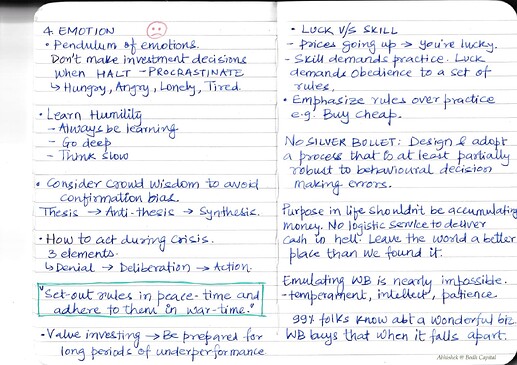 4. EMOTION
• Pendulum of emotions.
Don't make investment decisions
when HALT - PROCRASTINATE
↳ Hungry, Angry, Lonely, Tired.
• Learn Humility
- Always be learning
- Go deep
- Think slow
• Consider Crowd Wisdom to avoid
confirmation bias.
Thesis → Anti-thesis → Synthesis.
• How to act during Crisis.
3 elements.
↳ Denial → Deliberation → Action.
"Set-out rules in peace-time and
adhere to them in war-time."
• Value investing → Be prepared for
long periods of underperformance.
• LUCK V/S SKILL
- Prices going up → You're lucky.
- Skill demands practice. Luck
demands obedience to a set of
rules.
• Emphasize rules over practice
e.g. Buy cheap.
NO SILVER BULLET: Design & adopt
a process that is at least partially
robust to behavioural decision
making errors.
Purpose in life shouldn't be accumulating
money. No logistic service to deliver
cash in hell. Leave the world a better
place than we found it.
Emulating WB is nearly impossible.
- temperament, intellect, patience.
99% folks know abt a wonderful biz.
WB buys that when it falls apart.
Abhishek @ Bodh Capital